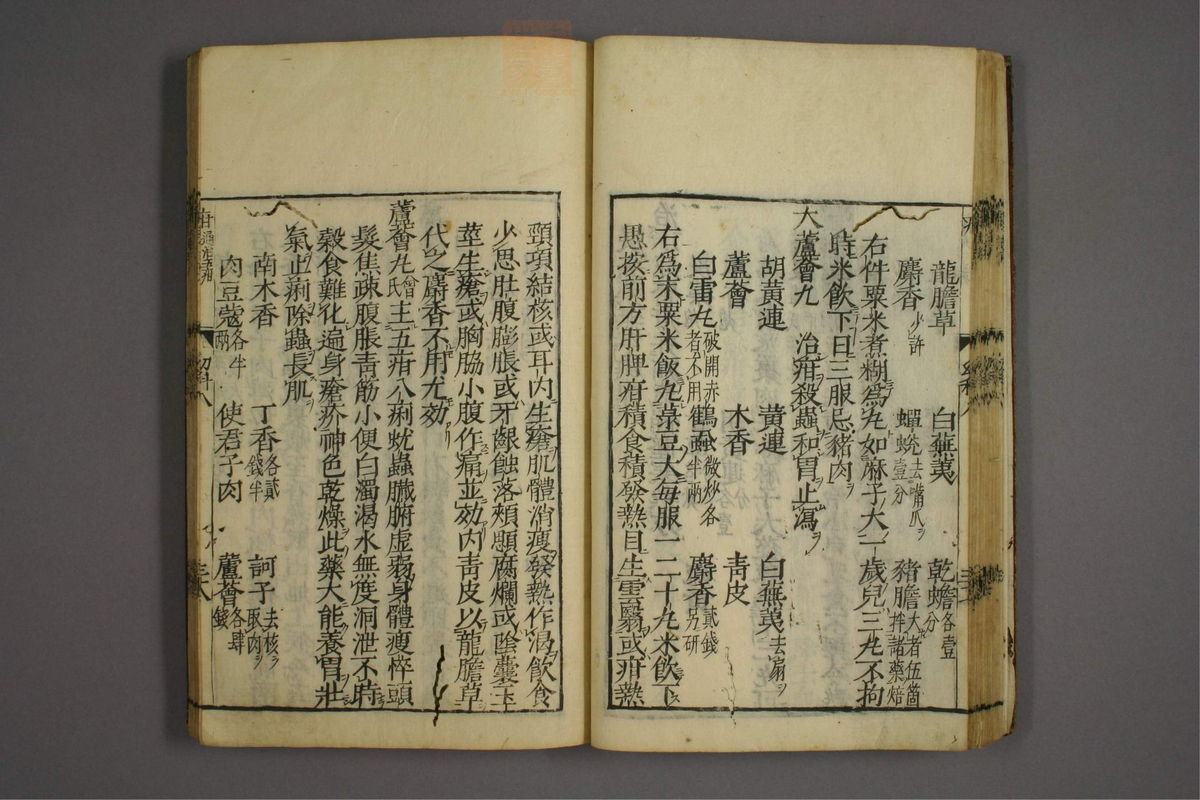 龍膽草 白蕪荑 乾蟾各壹分
麝香少許 蠟蛻去嘴爪ヲ壹分 豬膽大者伍箇拌諸藥焙
右件粟米煮糊爲丸如麻子大一歲兒三丸不拘
時米飲下日三服忌豬肉ヲ
大蘆薈丸 治疳殺蟲和胃止瀉ヲ
胡黃連 黃連 白蕪荑去扇ヲ
蘆薈 木香 青皮
白雷丸破開赤者不用 鶴虱微炒各半兩 麝香貳錢另研
右爲末粟米飯丸菉豆大每服一二十丸米飲下
愚按前方肝脾疳積食積發熱目生雲翳或疳熱
頸項結核或耳內生瘡肌體消瘦發熱作渴飲食
少思肚腹膨脹或牙齦蝕落頰顋腐爛或陰囊玉
莖生瘡或胸脇小腹作痛並効內青皮以龍膽草
代之麝香不用尤効
蘆薈丸曾氏 主五疳八痢蚘蟲臟腑虛弱身體瘦悴頭
髮焦疎腹脹青筋小便白濁渴水無度洞泄不時
穀食難化遍身瘡疥神色乾燥此藥大能養胃壯
氣止痢除蟲長肌
南木香 丁香各貳錢半 訶子去核ヲ取肉ヲ
肉豆蔻各半兩 使君子肉 蘆薈各肆錢